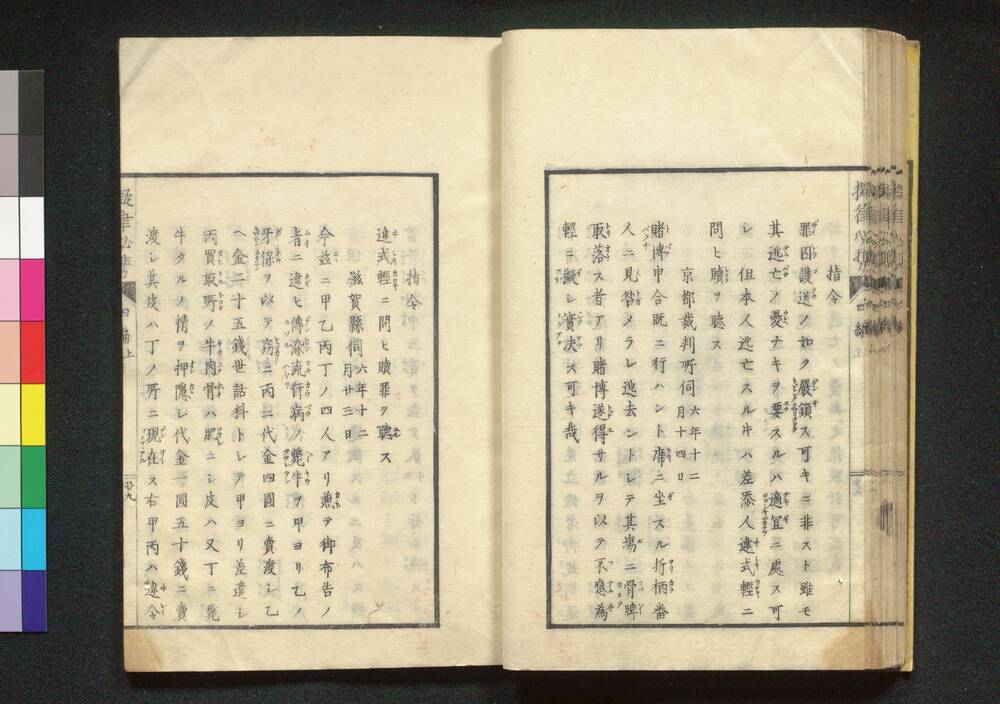 指令
罪囚護送ノ如ク嚴鎖ス可キニ非スト雖モ
其逃亡ノ憂ナキヲ要スルハ適宜ニ處ス可
シ但本人逃亡スル片ハ差添人違式輕ニ
問ヒ贖ヲ聽ス
京都裁判所伺 六年十二月十四日
賭博申合既ニ行ハント席ニ坐スル折柄番
人ニ見咎メラレ逃去ントシテ其場ニ骨牌
取落ス者アリ賭博遂得サルヲ以テ不應為
輕ニ擬シ實決ス可キ哉
指令
違式輕ニ問ヒ贖罪ヲ聽ス
滋賀縣伺 六年十二月廿三日
今茲ニ甲乙丙丁ノ四人アリ兼テ御布告ノ
旨ニ違ヒ傳染流行病ノ斃牛ヲ甲ヨリ乙ノ
牙保ヲ以テ窃ニ丙ニ代金四圓ニ賣渡シ乙
ヘ金二十五錢世話料トシテ甲ヨリ差遣シ
丙買取所ノ牛肉骨ハ肥ニシ皮ハ又丁ニ斃
牛タルノ情ヲ押隠シ代金一圓五十錢ニ賣
渡シ其皮ハ丁ノ所ニ現在ス右甲丙ハ違令
四扁上
廿九